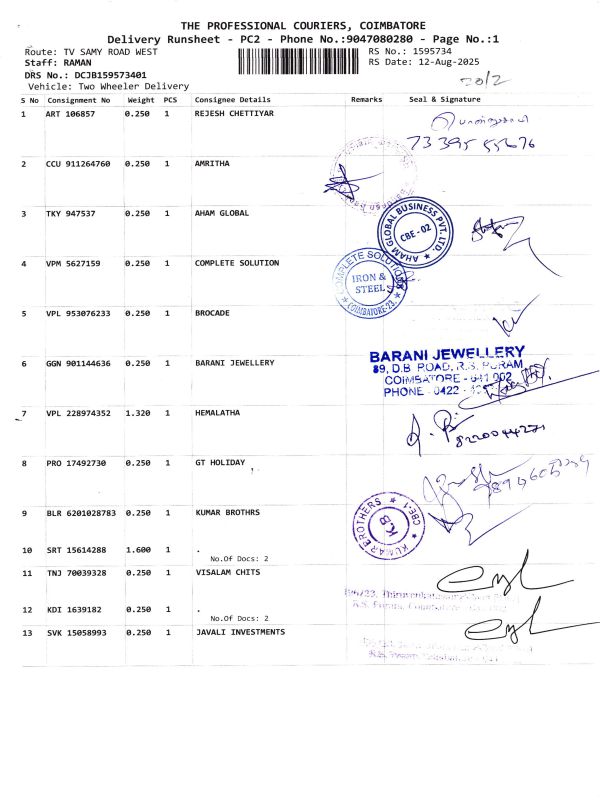 THE PROFESSIONAL COURIERS, COIMBATORE
Delivery Runsheet - PC2 - Phone No.:9047080280 - Page No.:1
Route: TV SAMY ROAD WEST
RS No.: 1595734
Staff: RAMAN
RS Date: 12-Aug-2025
DRS No.: DCJB159573401
Vehicle: Two Wheeler Delivery
S No Consignment No Weight PCS Consignee Details Remarks Seal & Signature
1 ART 106857 0.250 1 REJESH CHETTIYAR
2 CCU 911264760 0.250 1 AMRITHA
3 TKY 947537 0.250 1 AHAM GLOBAL
AHAM GLOBAL BUSINESS PVT. LTD.
CBE - 02
4 VPM 5627159 0.250 1 COMPLETE SOLUTION
COMPLETE SOLUTION
IRON &
STEEL
COIMBATORE-23.
5 VPL 953076233 0.250 1 BROCADE
6 GGN 901144636 0.250 1 BARANI JEWELLERY
BARANI JEWELLERY
89, D.B. ROAD, R.S. PURAM,
COIMBATORE - 641 002
PHONE : 0422 -
7 VPL 228974352 1.320 1 HEMALATHA
8220044271
8 PRO 17492730 0.250 1 GT HOLIDAY
9 BLR 6201028783 0.250 1 KUMAR BROTHRS
KUMAR BROTHERS
CBE-1
KB
10 SRT 15614288 1.600 1 .
No.Of Docs: 2
11 TNJ 70039328 0.250 1 VISALAM CHITS
12 KDI 1639182 0.250 1 .
No.Of Docs: 2
13 SVK 15058993 0.250 1 JAVALI INVESTMENTS